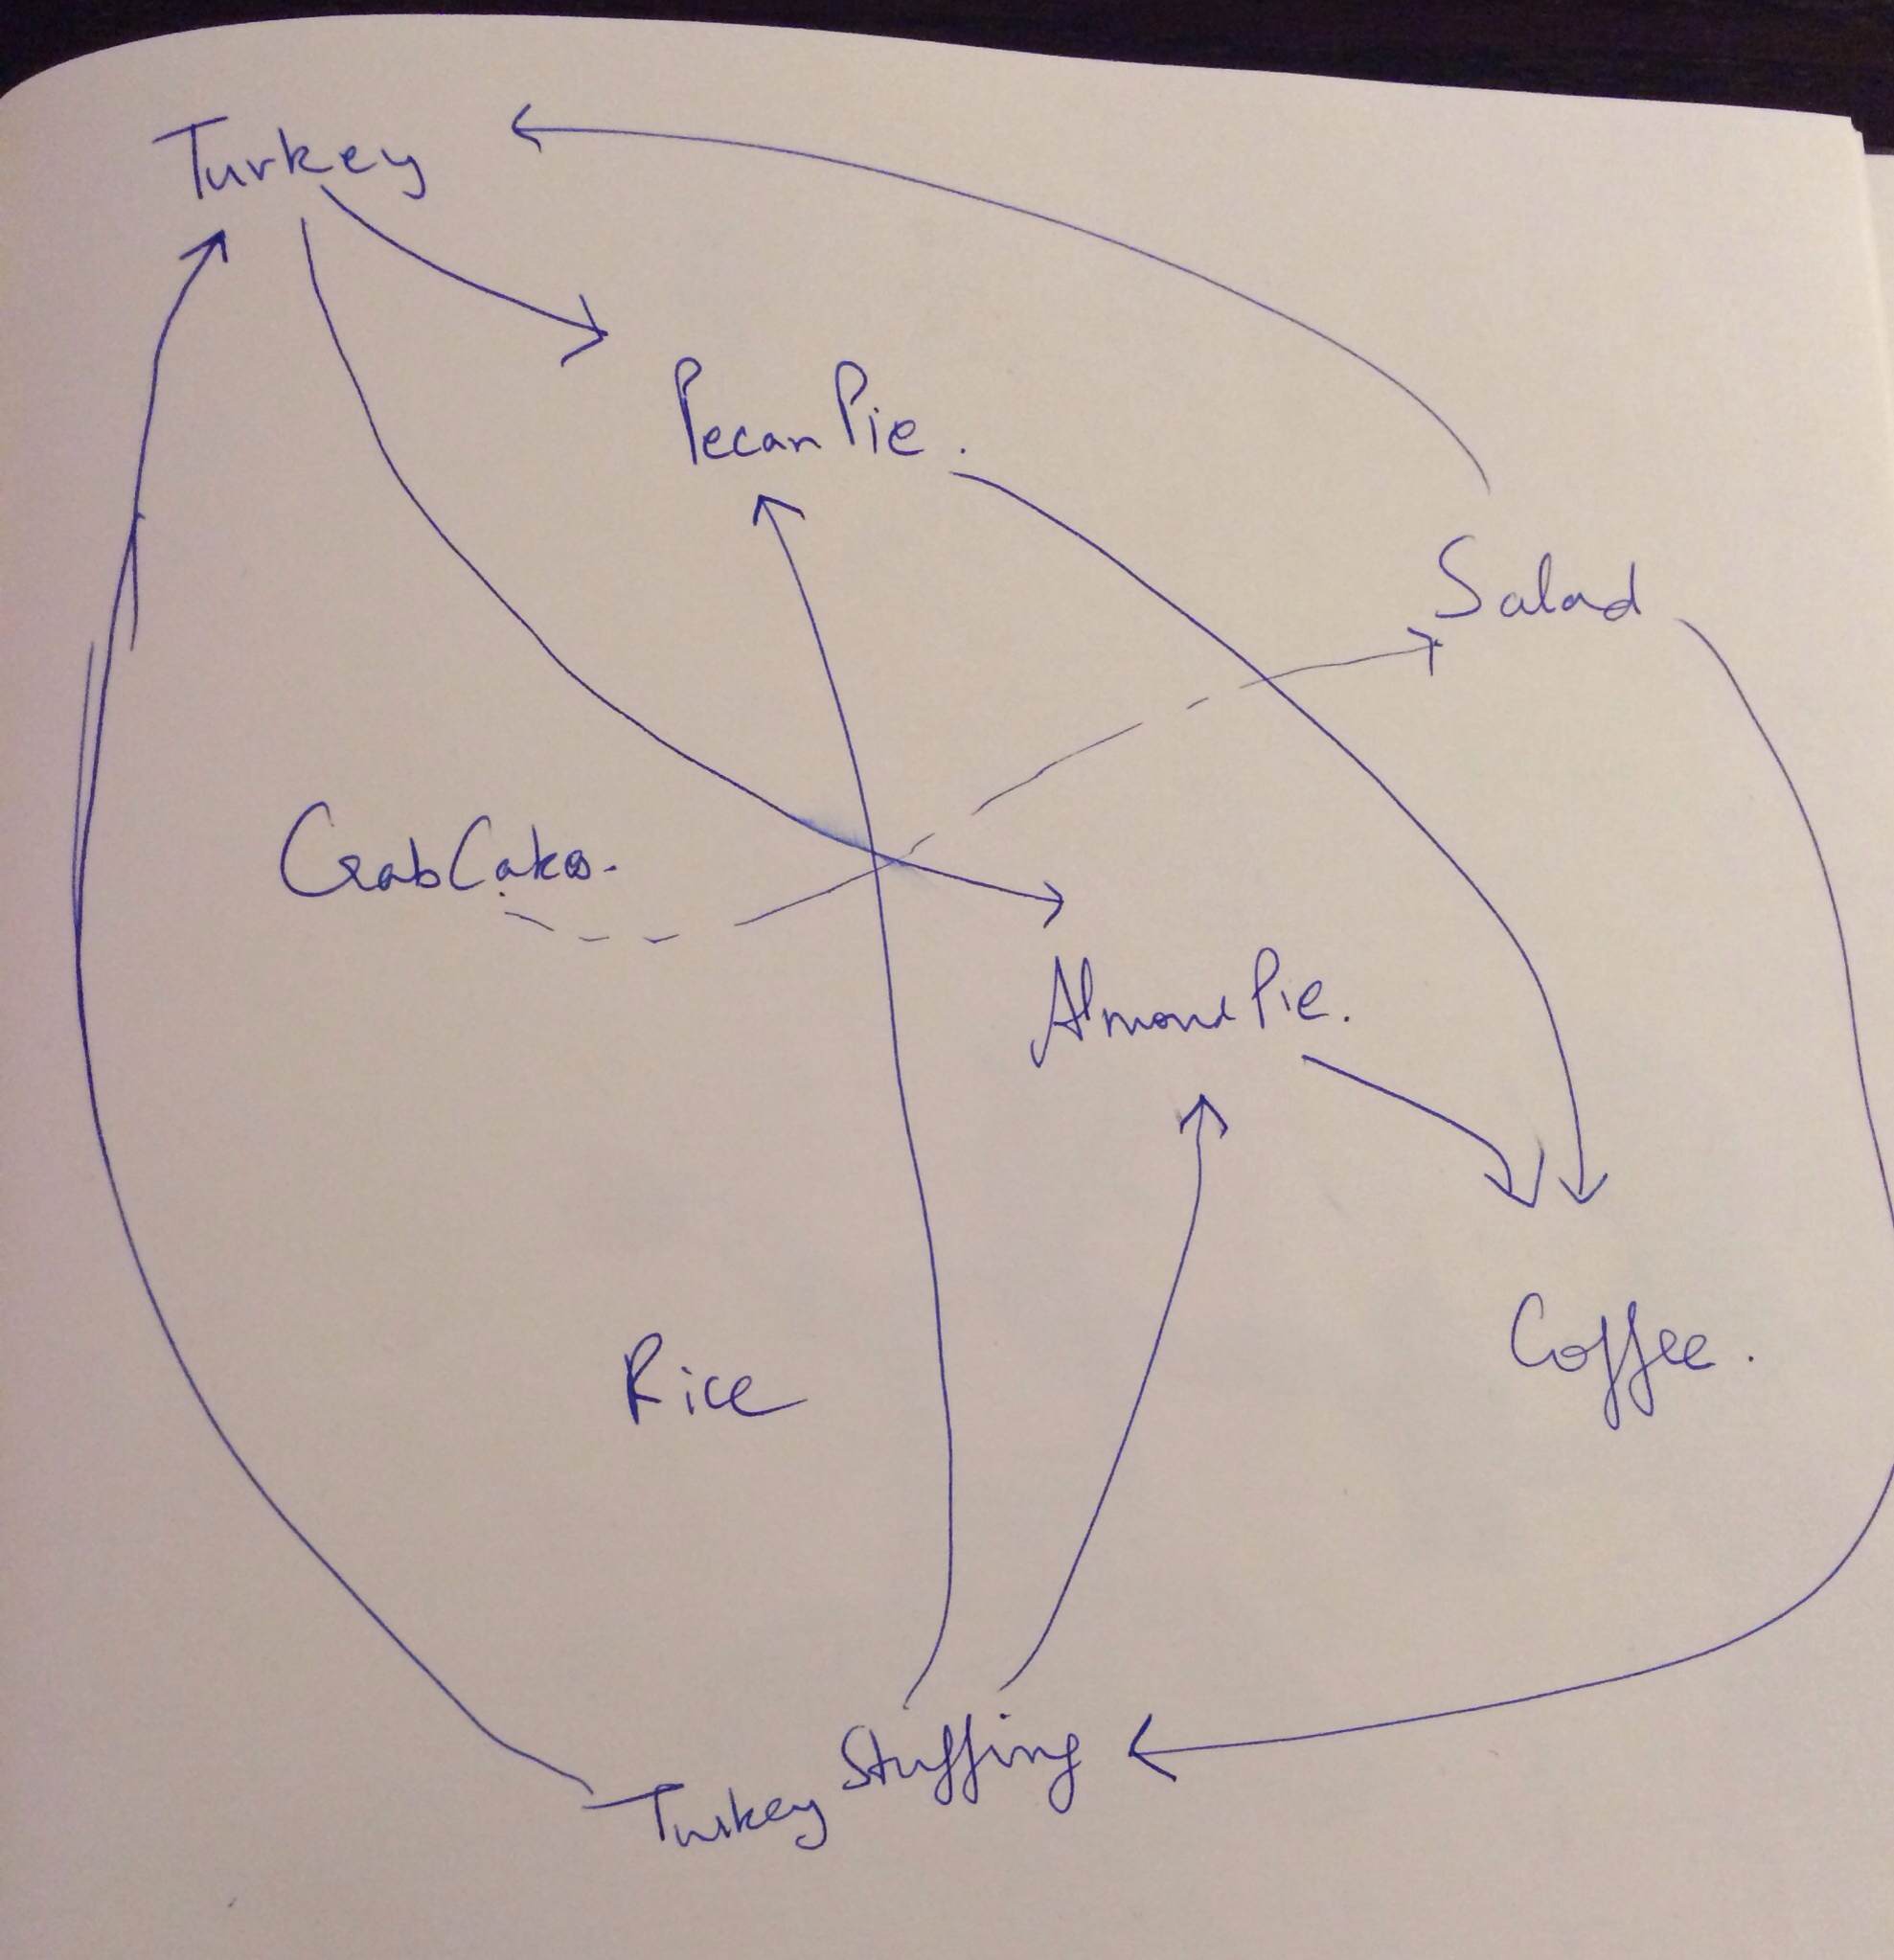 Turkey
Pecan Pie.
Salad
Crab Cakes.
Almond Pie.
Coffee.
Rice
Turkey Stuffing